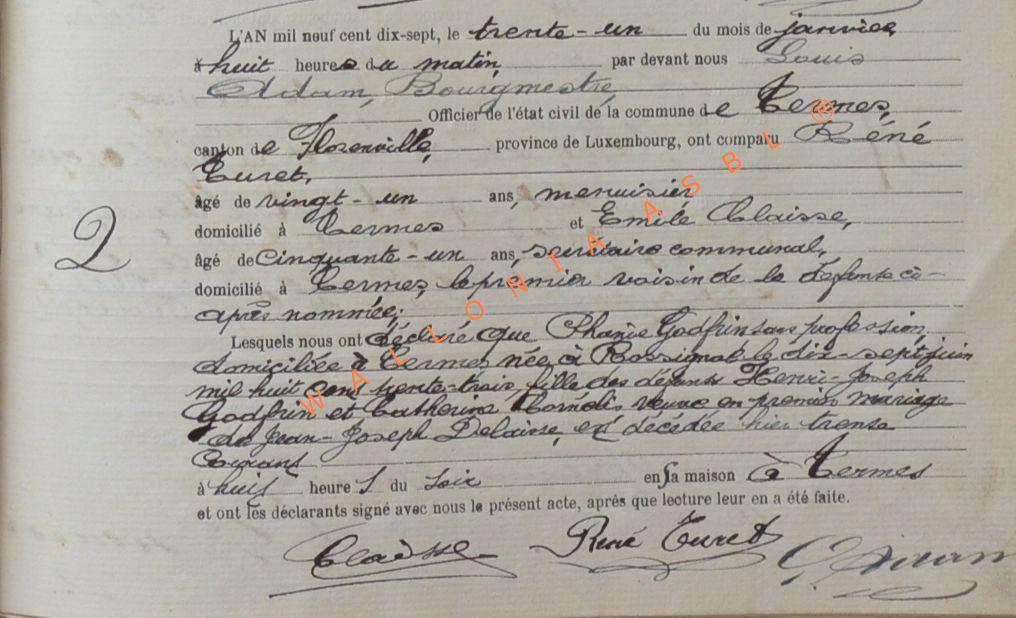 L'AN mil neuf cent dix-sept, le trente-un du mois de janvier
à huit heures du matin, par devant nous Louis
Adam, Bourgmestre,
Officier de l'état civil de la commune de Termes,
canton de Florenville, province de Luxembourg, ont comparu Réné
Turet,
âgé de vingt-un ans, menuisier
domicilié à Termes et Emile Claisse,
âgé de cinquante-un ans, secrétaire communal,
domicilié à Termes, le premier voisin de la défunte ci-
après nommée;
2
Lesquels nous ont déclaré que Godfrin sans profession,
domiciliée à Termes née à Rossignol le dix-sept juin
mil huit cent trente-trois, fille des défunts Henri-Joseph
Godfrin et Catherine veuve en premier mariage
de Jean-Joseph Delaisse, est décédée hier trente
courant
à huit heures du soir en sa maison à Termes
et ont les déclarants signé avec nous le présent acte, après que lecture leur en a été faite.
Claisse René Turet
WALLONIA ASBL ®